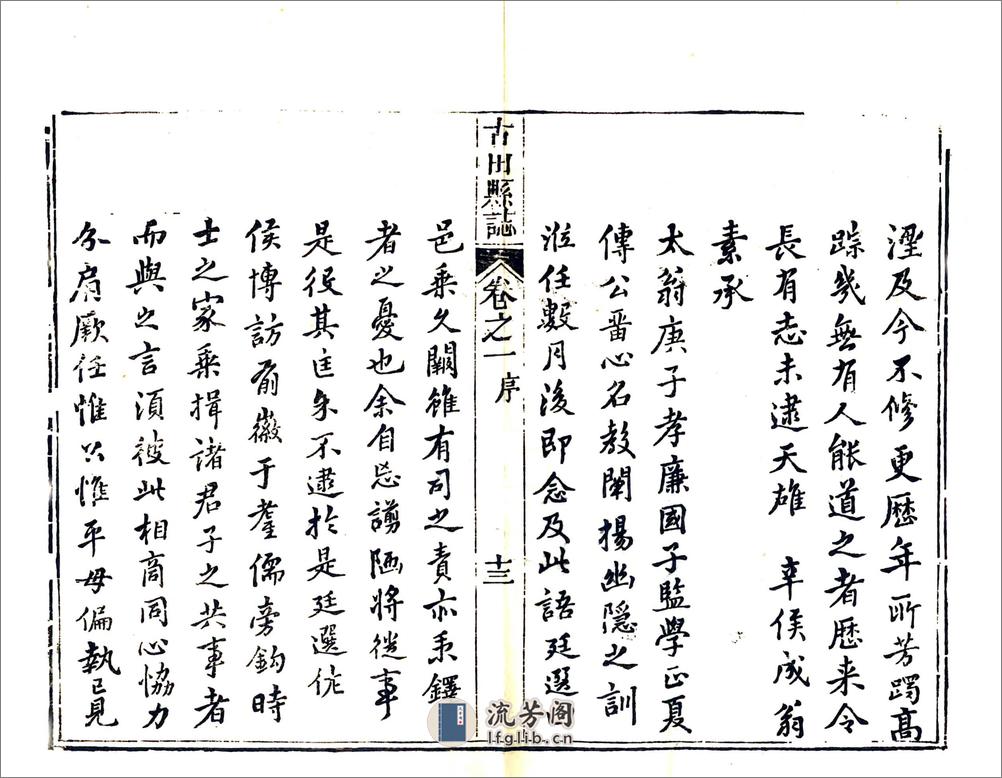 湮及今不修更歷年所芳躅高
踪幾無有人能道之者歷來令
長有志未逮天雄 辛侯成翁
素承
太翁庚子孝廉國子監學正夏
傳公畱心名教闡揚幽隱之訓
涖任數月後即念及此語廷選
古田縣誌 卷之一 序 十三
邑乗久闕雖有司之責亦秉鐸
者之憂也余自忘謭陋將從事
是役其匡余不逮於是廷選偹
侯博訪前徽于耆儒旁鈎時
士之家乗揖諸君子之共事者
而與之言須彼此相商同心協力
分肩厥任惟公惟平毋偏執已見
流芳阁
lfglib.cn